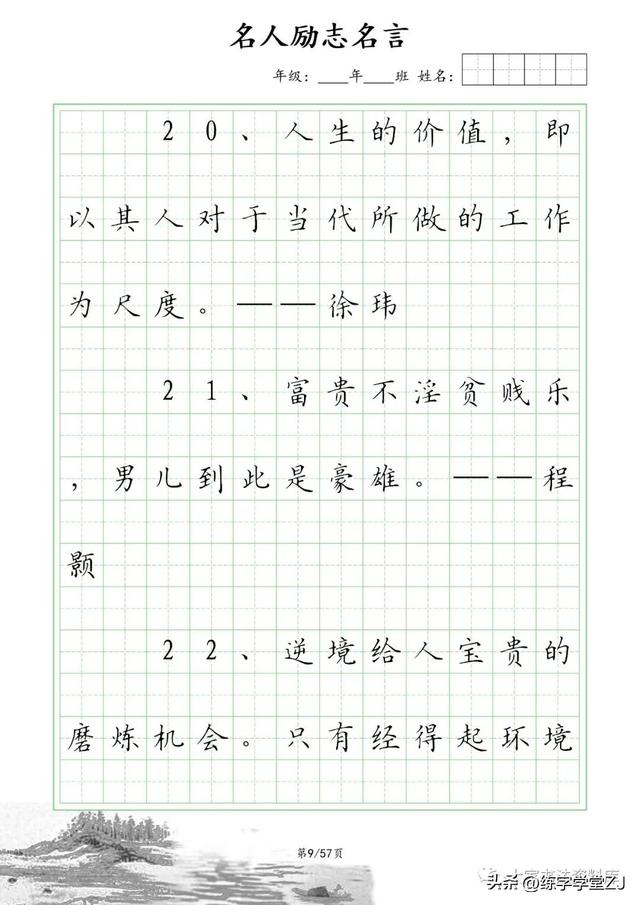 名人励志名言
年级：____年____班 姓名：
20、人生的价值，即
以其人对于当代所做的工作
为尺度。——徐玮
21、富贵不淫贫贱乐
，男儿到此是豪雄。——程
颢
22、逆境给人宝贵的
磨炼机会。只有经得起环境
第9/57页
头条@练字学堂ZJ